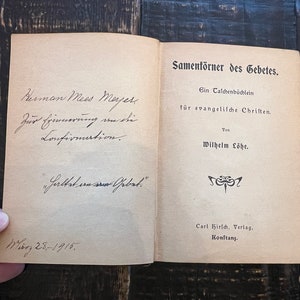 Herman Mees Meyer
Zur Erinnerung an die
Confirmation.
„Haltet an am Gebet."
März 28.-1915.
Samenkörner des Gebetes.
Ein Taschenbüchlein
für evangelische Christen.
Von
Wilhelm Löhe.
Carl Hirsch, Verlag.
Konstanz.